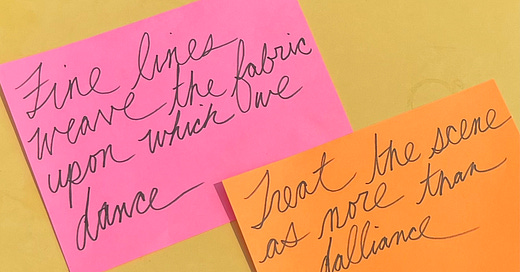 Fine lines
weave the fabric
upon which we
dance—
Treat the scene
as more than
dalliance